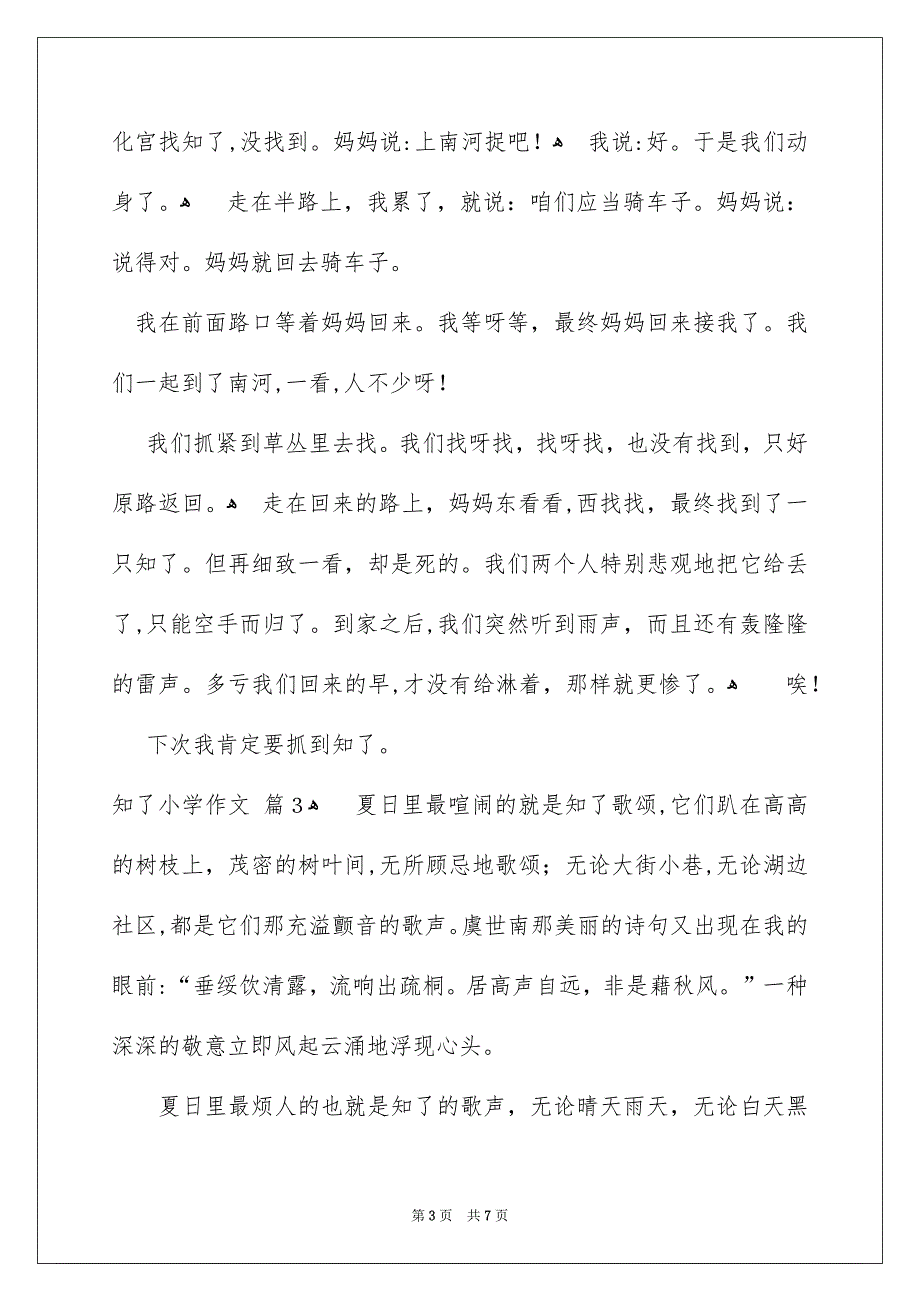 化宫找知了,没找到。妈妈说:上南河捉吧！ﻫ 我说:好。于是我们动
身了。ﻫ 走在半路上，我累了，就说：咱们应当骑车子。妈妈说：
说得对。妈妈就回去骑车子。
我在前面路口等着妈妈回来。我等呀等，最终妈妈回来接我了。我
们一起到了南河,一看,人不少呀！
我们抓紧到草丛里去找。我们找呀找，找呀找，也没有找到，只好
原路返回。ﻫ 走在回来的路上，妈妈东看看,西找找，最终找到了一
只知了。但再细致一看，却是死的。我们两个人特别悲观地把它给丢
了,只能空手而归了。到家之后,我们突然听到雨声，而且还有轰隆隆
的雷声。多亏我们回来的早,才没有给淋着，那样就更惨了。ﻫ 唉！
下次我肯定要抓到知了。
知了小学作文 篇3ﻫ 夏日里最喧闹的就是知了歌颂,它们趴在高高
的树枝上，茂密的树叶间,无所顾忌地歌颂；无论大街小巷,无论湖边
社区,都是它们那充溢颤音的歌声。虞世南那美丽的诗句又出现在我的
眼前:“垂绥饮清露，流响出疏桐。居高声自远，非是藉秋风。”一种
深深的敬意立即风起云涌地浮现心头。
夏日里最烦人的也就是知了的歌声，无论晴天雨天，无论白天黑
第 3 页 共 7 页